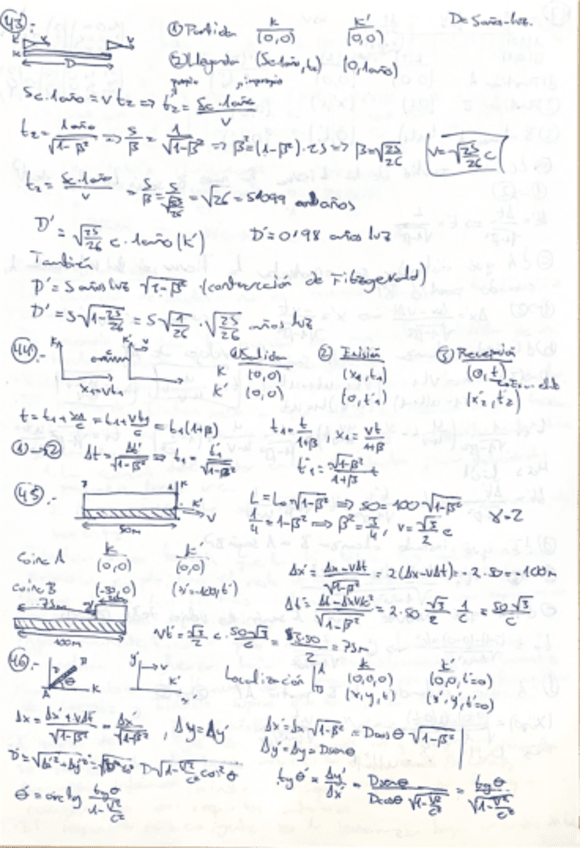 43.-
① Partida K (0,0) K' (0,0)
D=5 años-luz.
② Llegada (5c·1año, t₂) (0, 1año)
5c·1año = v t₂ ⇒ t₂ = 5c·1año / v
t₂ = 1año/√(1-β²) ⇒ 5/β = 1/√(1-β²) ⇒ β² = (1-β²)·25 ⇒ β = √(25/26) v = √(25/26) c
t₂ = 5c·1año / v = 5/β = √26 = 5'099 años
D' = √(25/26) c·1año (K') D' = 0'98 años luz
También
D' = 5 años luz √(1-β²) (contracción de Fitzgerald)
D' = 5√(1-25/26) = 5√(1/26) = √(25/26) años luz
44.-
① Salida K (0,0) K' (0,0)
② Emisión (x₁,t₁) (0,t'₁)
③ Recepción (0,t) (x'₂,t'₂)
x₁=vt₁
t = t₁ + x₁/c = t₁ + vt₁/c = t₁(1+β) t₁ = t/(1+β), x₁ = vt/(1+β)
①→② Δt = Δt'/√(1-β²) ⇒ t₁ = t'₁/√(1-β²) t'₁ = √(1-β²)/(1+β) t
45.-
50m
L = L₀√(1-β²) ⇒ 50 = 100·√(1-β²)
1/4 = 1-β² ⇒ β² = 3/4, v = √3/2 c γ=2
Coinc A K (0,0) K' (0,0)
Coinc B (-50,0) (x'=-100,t')
Δx' = (Δx-vΔt)/√(1-β²) = 2(Δx-vΔt) = -2·50 = -100m
Δt' = (Δt-Δxv/c²)/√(1-β²) = 2·50 √3/2 · 1/c = 50√3/c
75m
100m
vt' = √3/2 c · 50√3/c = 3·50/2 = 75m
46.-
Localización K (0,0,0) (x,y,t) K' (0,0,t'=0) (x',y',t'=0)
Δx = (Δx'+vΔt')/√(1-β²) = Δx'/√(1-β²), Δy = Δy'
Δx' = Δx√(1-β²) = D cosθ √(1-β²)
Δy' = Δy = D senθ
D' = √(Δx'²+Δy'²) = D√(1-v²/c² cos²θ)
tgθ' = Δy'/Δx' = D senθ / (D cosθ √(1-v²/c²)) = tgθ/√(1-v²/c²)